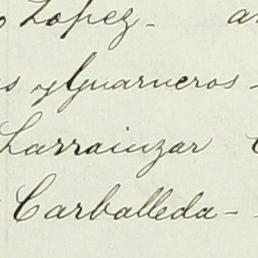 Lopez- a
s y Guarneros -
Larrainzar
Carballeda- -